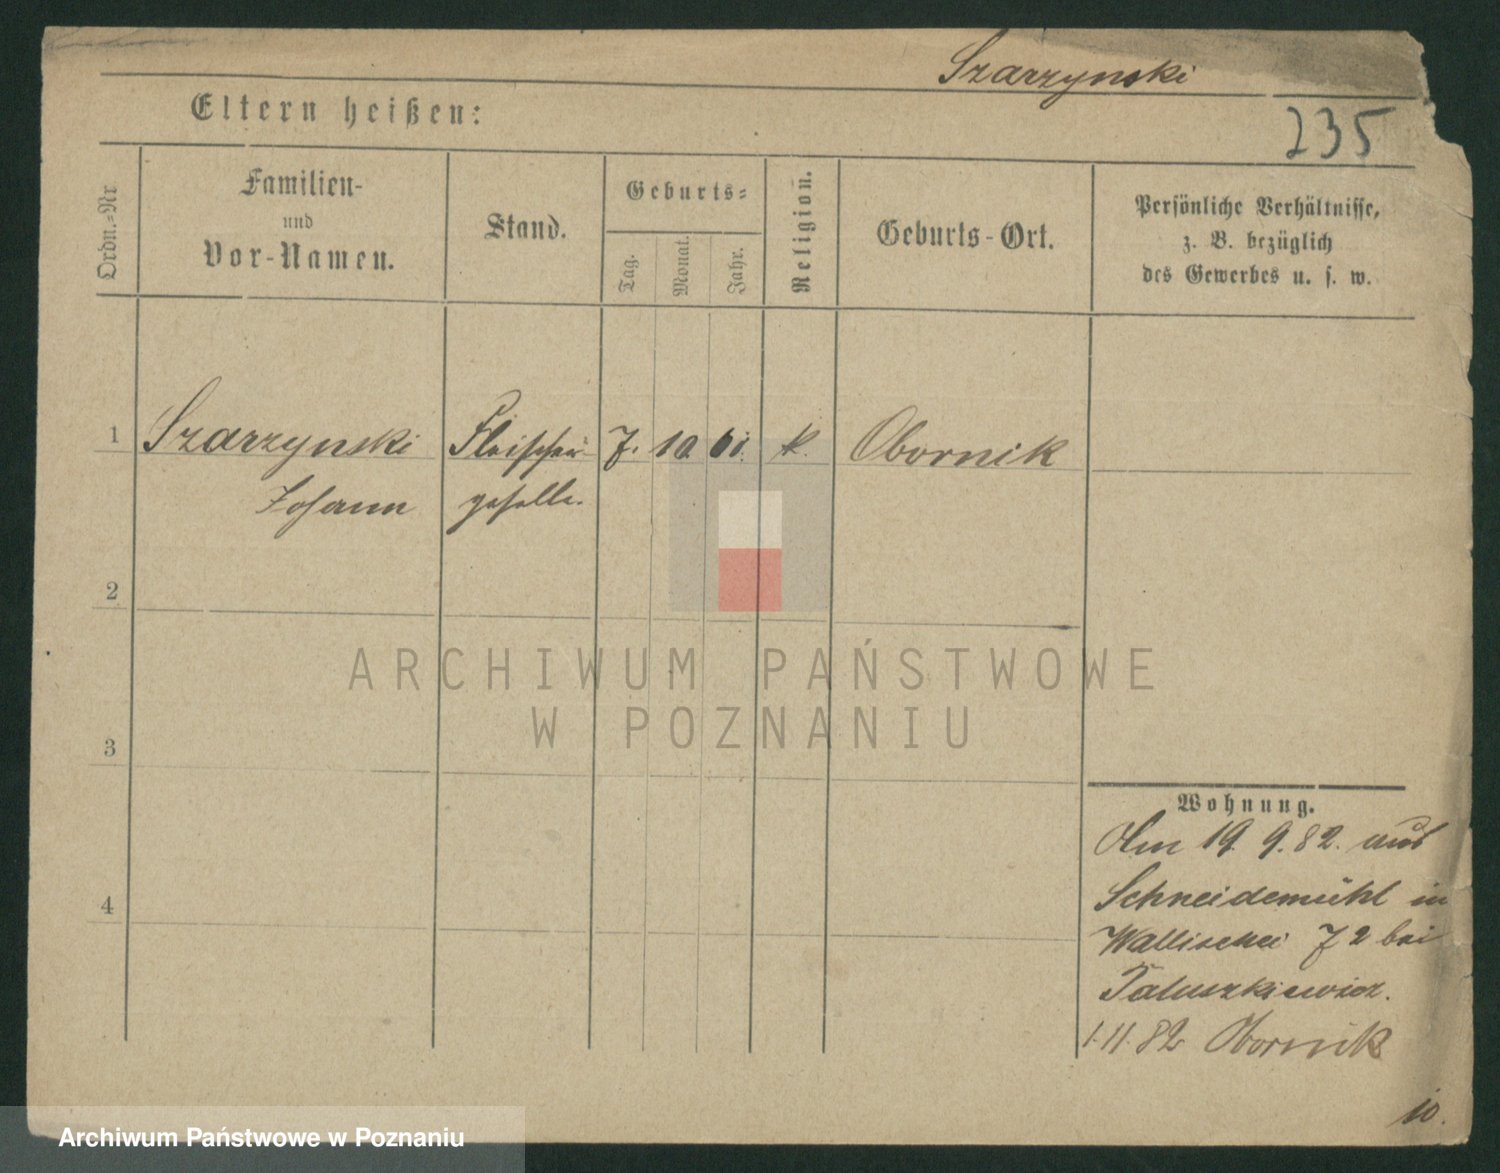 Szarzynski
Eltern heißen:
235
Ordn.-Nr
Familien-
und
Vor-Namen.
Stand.
Geburts-
Tag.
Monat.
Jahr.
Religion.
Geburts-Ort.
Persönliche Verhältnisse,
z. B. bezüglich
des Gewerbes u. s. w.
1 Szarzynski Fleischer 7. 10. 61. k. Obornik
Johann geselle.
2
3
4
ARCHIWUM PAŃSTWOWE
W POZNANIU
Wohnung.
Am 19. 9. 82. aus
Schneidemühl in
Wallischei 72 bei
Paluszkiewicz.
1.11.82 Obornik
10.
Archiwum Państwowe w Poznaniu